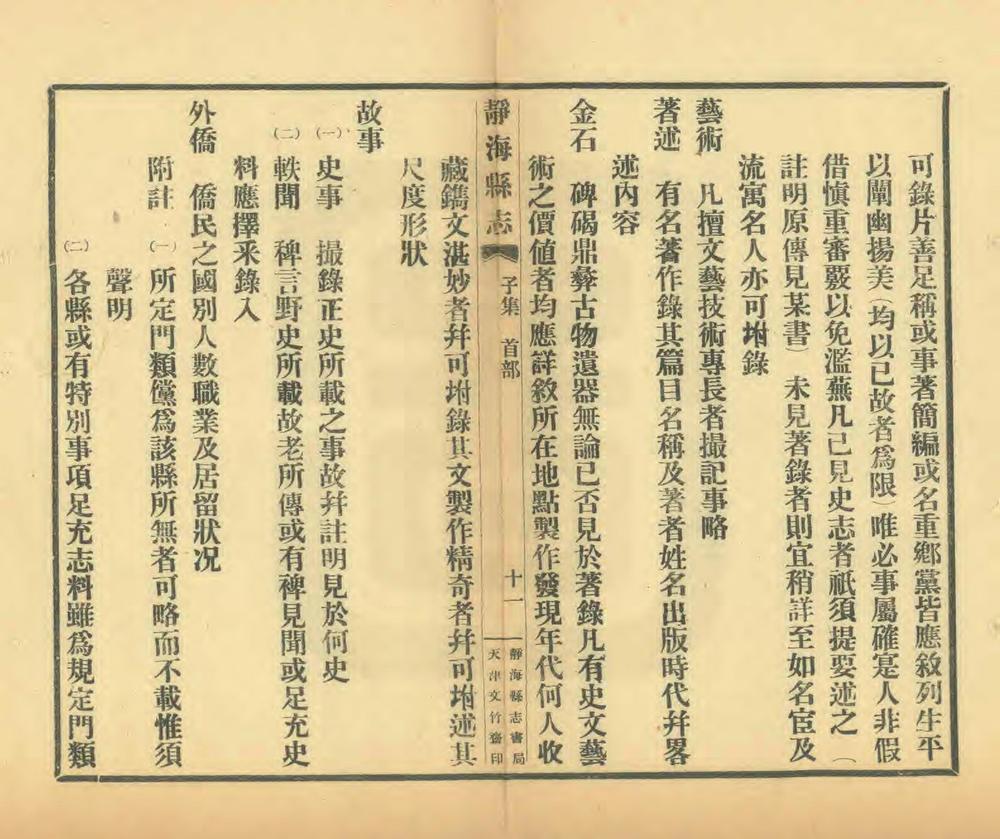 可錄片善足稱或事著簡編或名重鄉黨皆應敘列生平
以闡幽揚美（均以已故者爲限）唯必事屬確寔人非假
借愼重審覈以免濫蕪凡已見史志者祇須提要述之（
註明原傳見某書）未見著錄者則宜稍詳至如名宦及
流寓名人亦可坿錄
藝術　凡擅文藝技術專長者撮記事略
著述　有名著作錄其篇目名稱及著者姓名出版時代幷畧
述內容
金石　碑碣鼎彝古物遺器無論已否見於著錄凡有史文藝
術之價值者均應詳敘所在地點製作發現年代何人收
靜海縣志　子集　首部　十一　靜海縣志書局
天津文竹齋印
藏鐫文湛妙者幷可坿錄其文製作精奇者幷可坿述其
尺度形狀
故事
（一）史事　撮錄正史所載之事故幷註明見於何史
（二）軼聞　稗言野史所載故老所傳或有裨見聞或足充史
料應擇釆錄入
外僑　僑民之國別人數職業及居留狀况
附註　（一）所定門類儻爲該縣所無者可略而不載惟須
聲明
（二）各縣或有特別事項足充志料雖爲規定門類